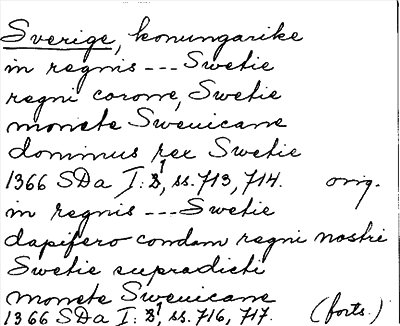 Sverige, konungarike
in regnis --- Swetie
regni corone, Swetie
monete Sweuicane
dominus rex Swetie
1366 SDa I:B¹, ss. 713, 714. orig.
in regnis --- Swetie
dapifero condam regni nostri
Swetie supradicti
monete Sweuicane
1366 SDa I:B¹, ss. 716, 717. (forts.)